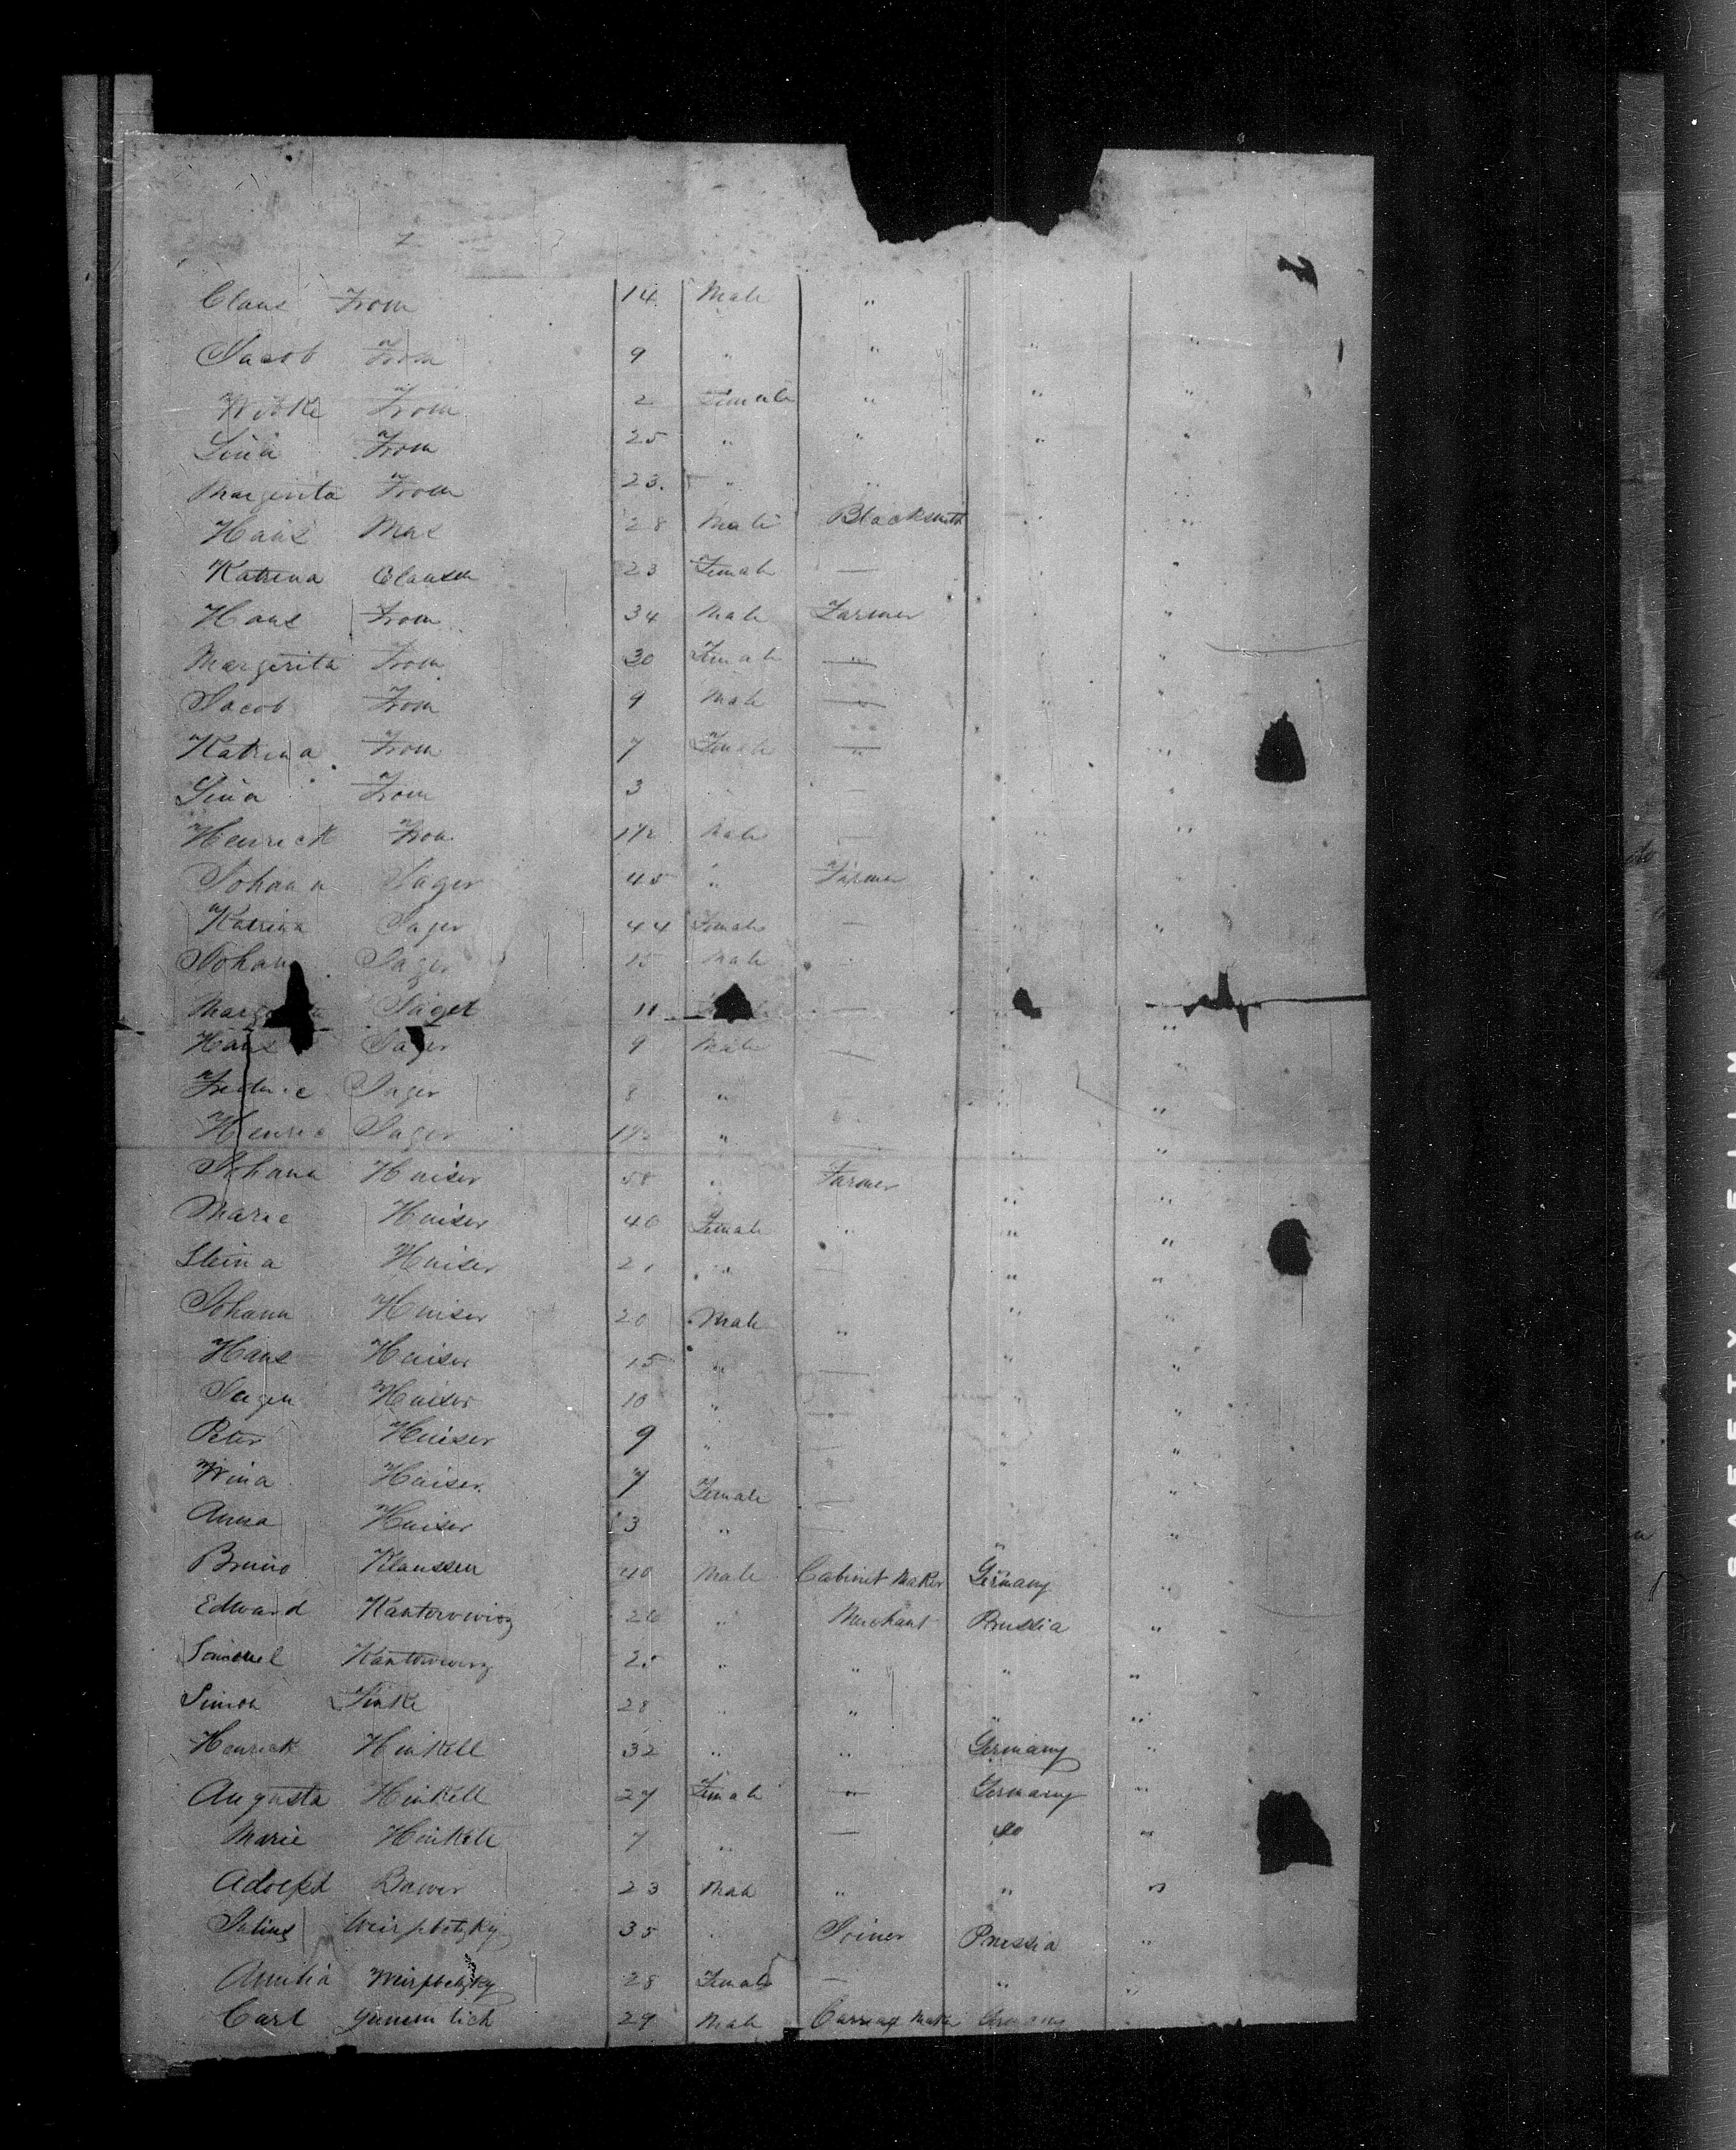 Claus From 14 Male "
Jacob From 9 " " " "
Wibke From 2 Female " " "
Lina From 25 " " " "
Margerita From 23. " " "
Hans Mas 28 Male Blacksmith " "
Katrina Clausen 23 Female — "
Hans From 34 Male Farmer "
Margerita From 30 Female — "
Jacob From 9 Male — " "
Katrina From 7 Female — "
Lina From 3 " — "
Henrick From 1½ Male — " "
Johann Jager 45 " Farmer " "
Katrina Jager 44 Female — " "
Johan Jager 15 Male
Jaget 11 —
Hans Jager 9 Male — " "
Frederic Jager 8 " "
Henric Jager 1½ " — " "
Johann Haiser 58 " Farmer " "
Marie Haiser 40 Female " " "
Steina Haiser 21 " — " "
Johann Haiser 20 Male " " "
Hans Haiser 15 " — " "
Jurgen Haiser 10 " — " "
Peter Haiser 9 " — " "
Wina Haiser 7 Female — " "
Anna Haiser 3 " — "
Bruno Klaussen 40 Male Cabinet Maker Germany "
Edward Kantorowicz 26 " Merchant Prussia "
Samuel Kantorowicz 25 " " " "
Simon 28 " " " "
Henrick Hinkell 32 " " Germany "
Augusta Hinkell 27 Female — Germany "
Marie Hinkell 7 " — do "
Adolph Bawer 23 Male " " "
Julius 35 " Joiner Prussia "
Amilia 28 Female — " "
Carl 29 Male Carriag Maker Germany